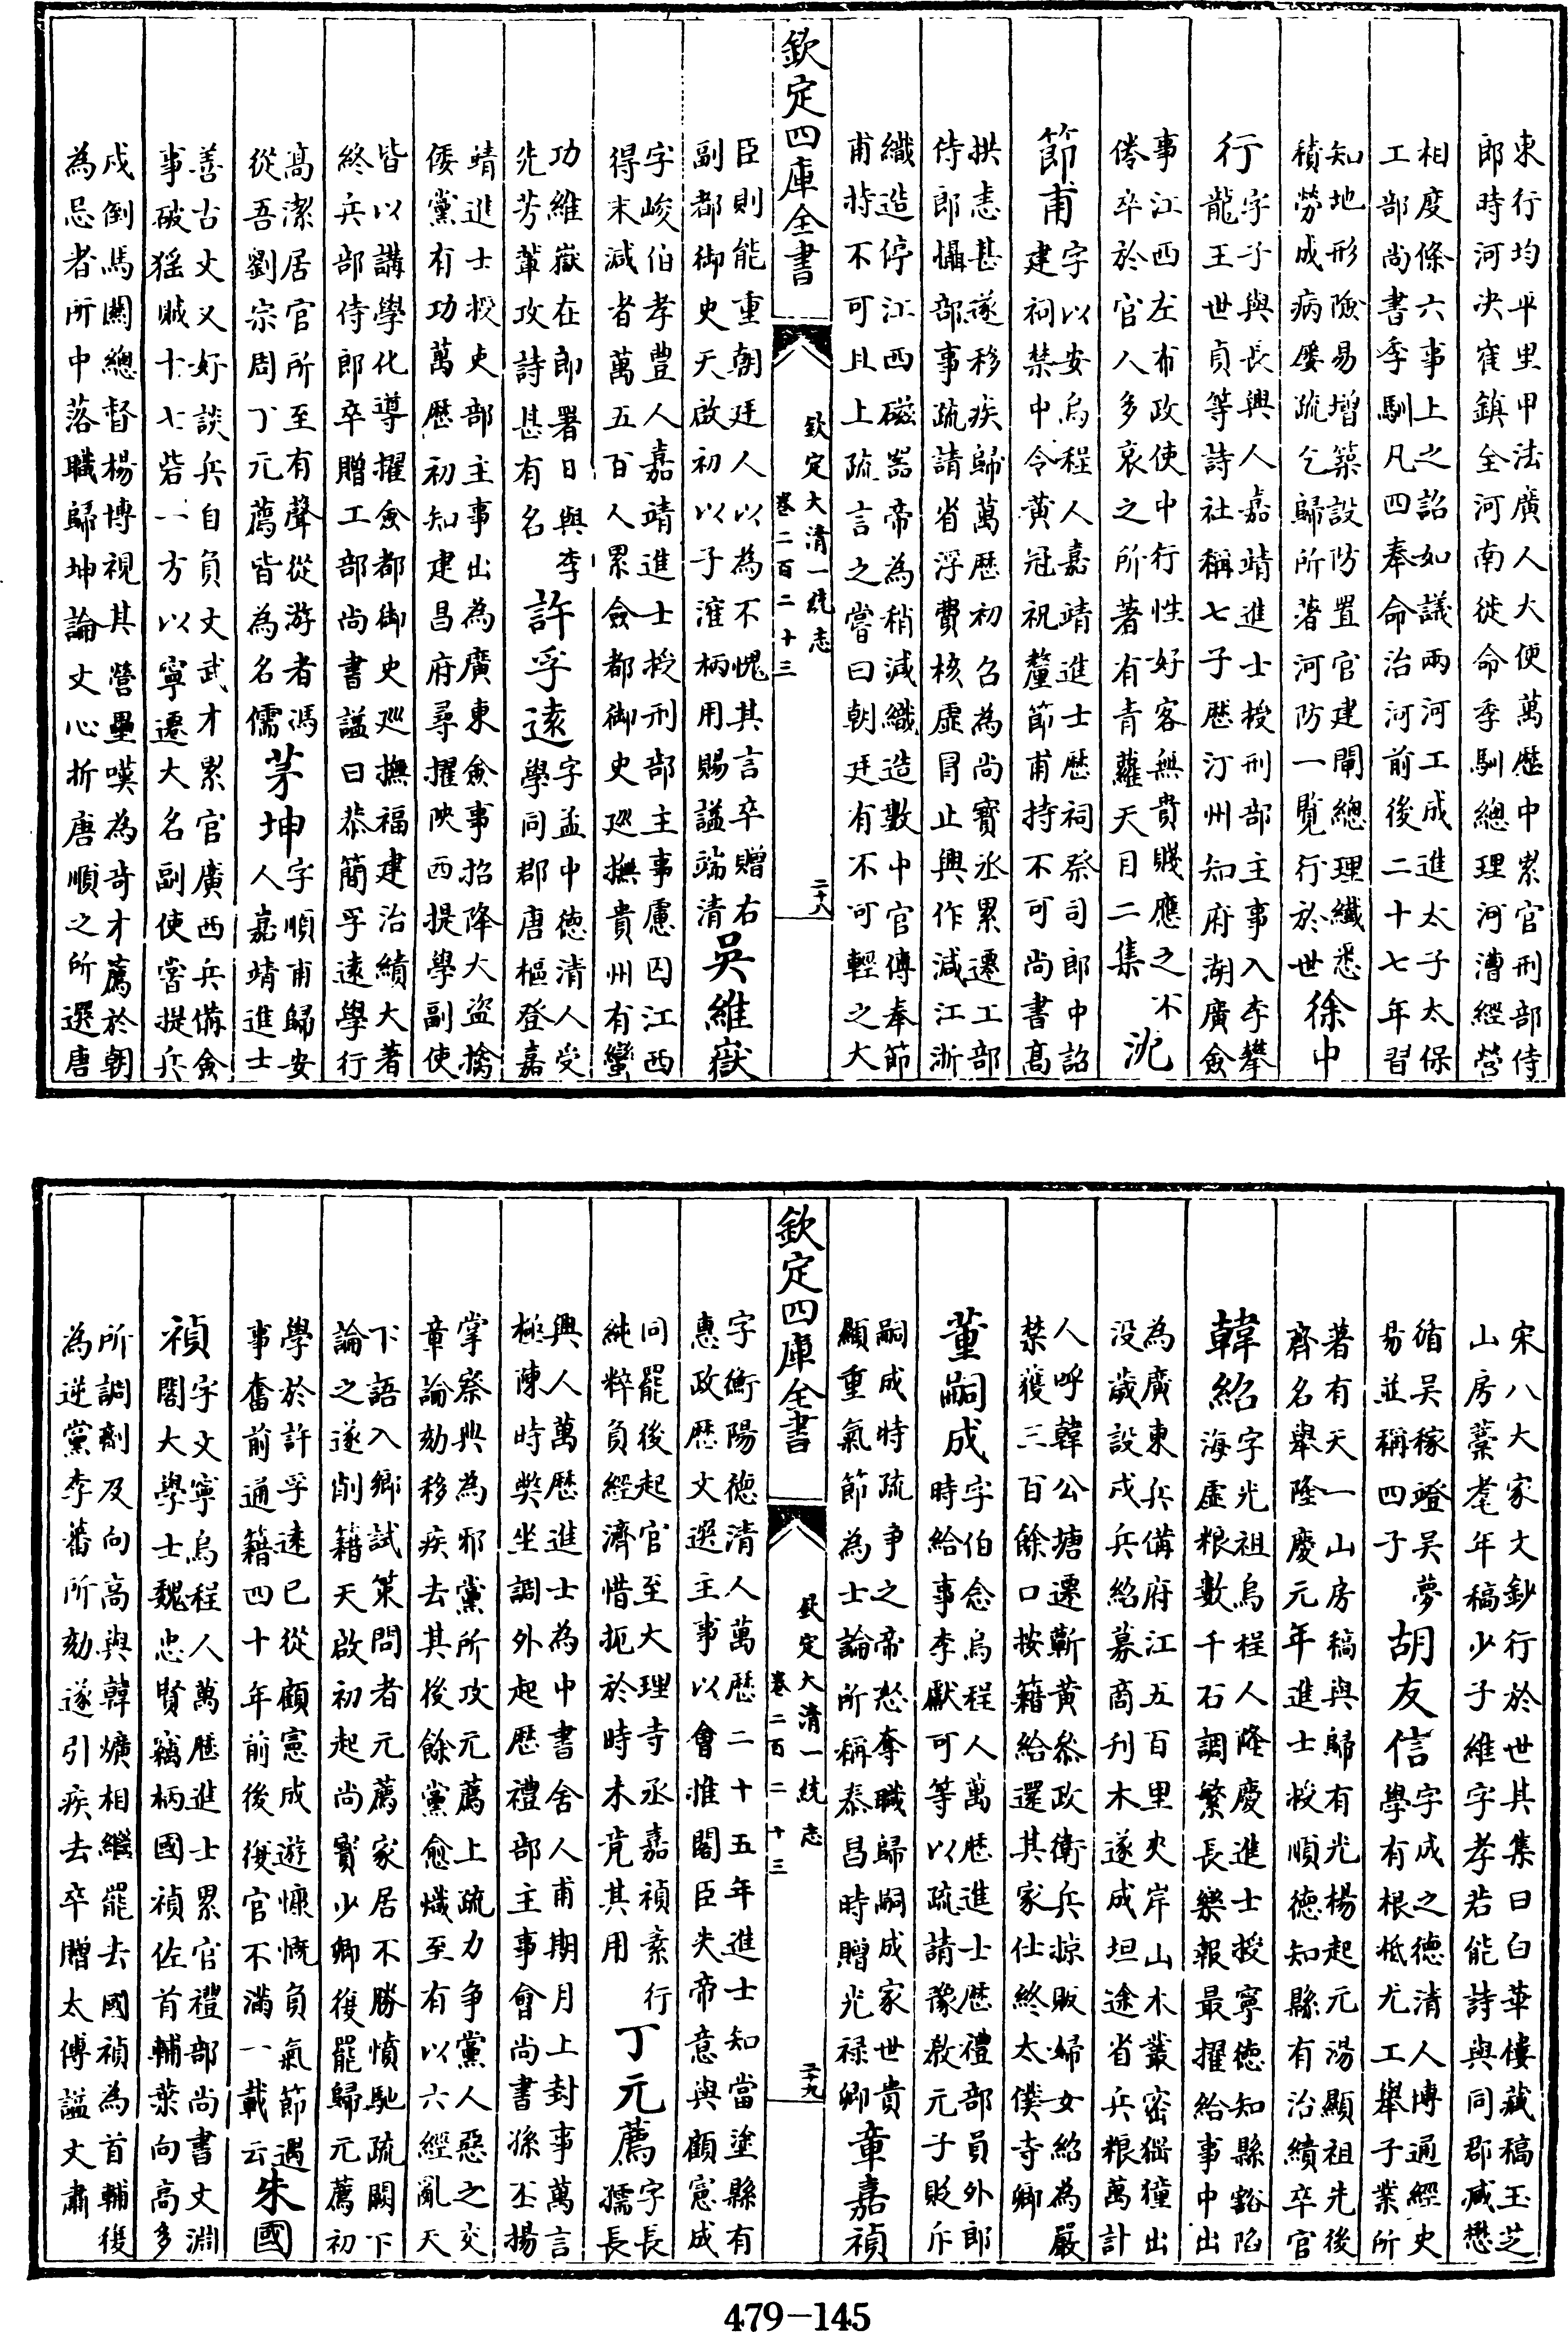 東行均平里甲法廣人大便萬歷中累官刑部侍
郎時河决崔鎮全河南徙命季馴總理河漕經營
相度條六事上之詔如議兩河工成進太子太保
工部尚書季馴凡四奉命治河前後二十七年習
知地形險易增築設防置官建閘總理纎悉
積勞成病屢疏乞歸所著河防一覧行於世
徐中
行
字子與長興人嘉靖進士授刑部主事入李攀
龍王世貞等詩社稱七子歷汀州知府湖廣僉
事江西左布政使中行性好客無貴賤應之不
倦卒於官人多哀之所著有青蘿天目二集
沈
節甫
字以安烏程人嘉靖進士歷祠祭司郎中詔
建祠禁中令黃冠祝釐節甫持不可尚書高
拱恚甚遂移疾歸萬歷初召為尚寳丞累遷工部
侍郎攝部事疏請省浮費核虛冒止興作減江浙
織造停江西磁噐帝為稍減織造數中官傳奉節
甫持不可且上疏言之嘗曰朝廷有不可輕之大
欽定四庫全書
欽定大清一統志
卷二百二十三
二十八
臣則能重朝廷人以為不愧其言卒贈右
副都御史天啟初以子㴶柄用賜諡端清
吳維嶽
字峻伯孝豊人嘉靖進士授刑部主事慮囚江西
得末減者萬五百人累僉都御史巡撫貴州有蠻
功維嶽在郎署日與李
先芳輩攻詩甚有名
許孚遠
字孟中德清人受
學同郡唐樞登嘉
靖進士授吏部主事出為廣東僉事招降大盜擒
倭黨有功萬歷初知建昌府尋擢陝西提學副使
皆以講學化導擢僉都御史巡撫福建治績大著
終兵部侍郎卒贈工部尚書諡曰恭簡孚遠學行
高潔居官所至有聲從游者馮
從吾劉宗周丁元薦皆為名儒
茅坤
字順甫歸安
人嘉靖進士
善古文又好談兵自負文武才累官廣西兵備僉
事破猺賊十七砦一方以寧遷大名副使嘗提兵
戍倒馬關總督楊博視其營壘嘆為竒才薦於朝
為忌者所中落職歸坤論文心折唐順之所選唐
宋八大家文鈔行於世其集曰白華樓藏稿玉芝
山房藁耄年稿少子維字孝若能詩與同郡臧懋
循吳稼竳吳夢
易並稱四子
胡友信
字成之德清人博通經史
學有根柢尤工舉子業所
著有天一山房稿與歸有光楊起元湯顯祖先後
齊名舉隆慶元年進士授順德知縣有治績卒官
韓紹
字光祖烏程人隆慶進士授寧德知縣谿陷
海虛粮數千石調繁長樂報最擢給事中出
為廣東兵備府江五百里夾岸山木叢密猺獞出
没歲設戍兵紹募商刋木遂成坦途省兵粮萬計
人呼韓公塘遷蘄黄叅政衛兵掠販婦女紹為嚴
禁獲三百餘口按籍給還其家仕終太僕寺卿
董嗣成
字伯念烏程人萬歷進士歷禮部員外郎
時給事李獻可等以疏請豫敎元子貶斥
嗣成特疏爭之帝怒奪職歸嗣成家世貴
顯重氣節為士論所稱泰昌時贈光禄卿
章嘉禎
欽定四庫全書
欽定大清一統志
卷二百二十三
二十九
字衡陽德清人萬歷二十五年進士知當塗縣有
惠政歷文選主事以會推閣臣失帝意與顧憲成
同罷後起官至大理寺丞嘉禎素行
純粹負經濟惜扼於時未竟其用
丁元薦
字長
孺長
興人萬歷進士為中書舍人甫期月上封事萬言
極陳時獘坐調外起歷禮部主事會尚書孫丕揚
掌察典為邪黨所攻元薦上疏力爭黨人惡之交
章論劾移疾去其後餘黨愈熾至有以六經亂天
下語入鄉試策問者元薦家居不勝憤馳疏闕下
論之遂削籍天啟初起尚寳少卿復罷歸元薦初
學於許孚逺已從顧憲成遊慷慨負氣節遇
事奮前通籍四十年前後復官不滿一載云
朱國
禎
字文寧烏程人萬歷進士累官禮部尚書文淵
閣大學士魏忠賢竊柄國禎佐首輔葉向高多
所調劑及向高與韓爌相繼罷去國禎為首輔後
為逆黨李蕃所劾遂引疾去卒贈太傅諡文肅
479-145